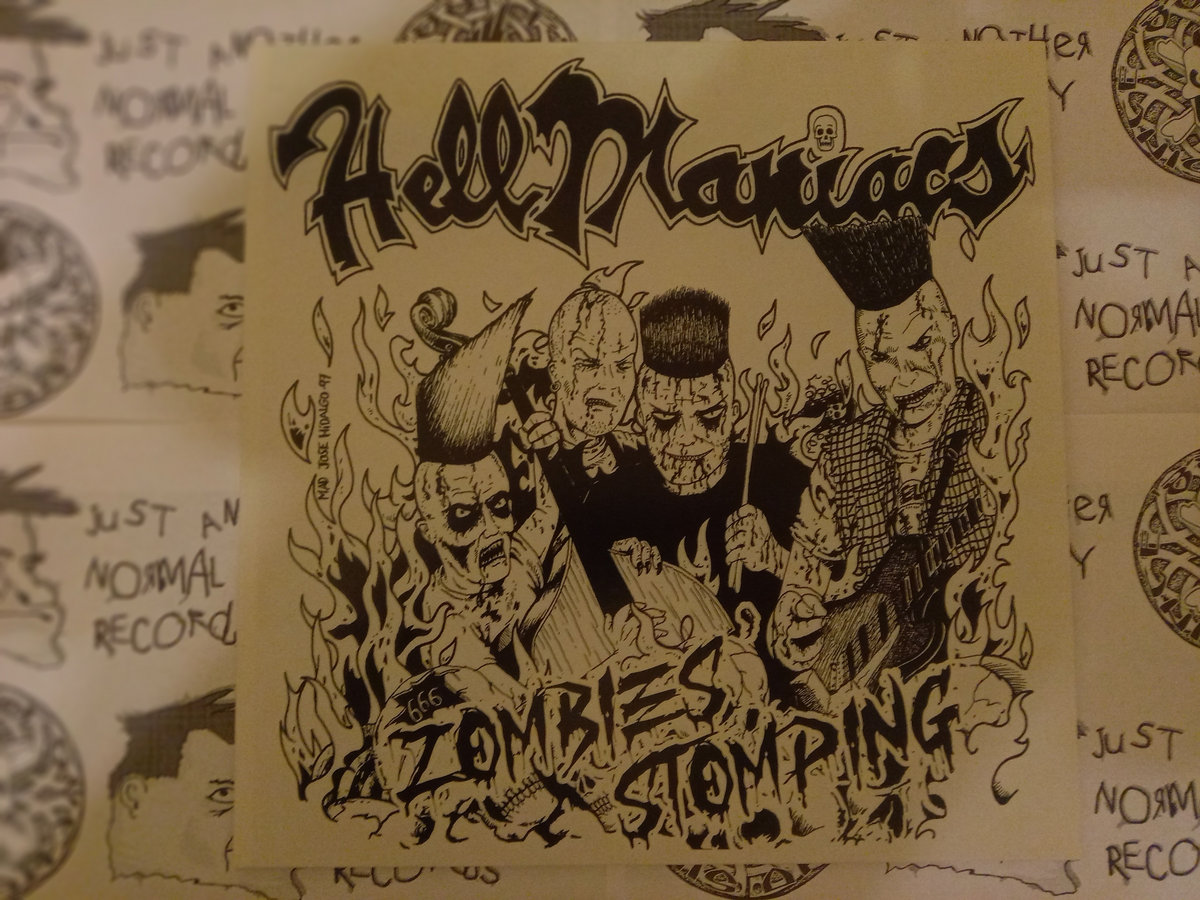 Hell Maniacs
MAD JOSE HIDALGO 97
666
ZOMBIES
STOMPING
JUST ANOTHER
NORMAL
RECORD
JUST ANOTHER
Y
JUST A
NORMA
RECOR
JUST AN
NORMAL
RECORD
ER
Y
JUST
NORM
RECO
RECORDS